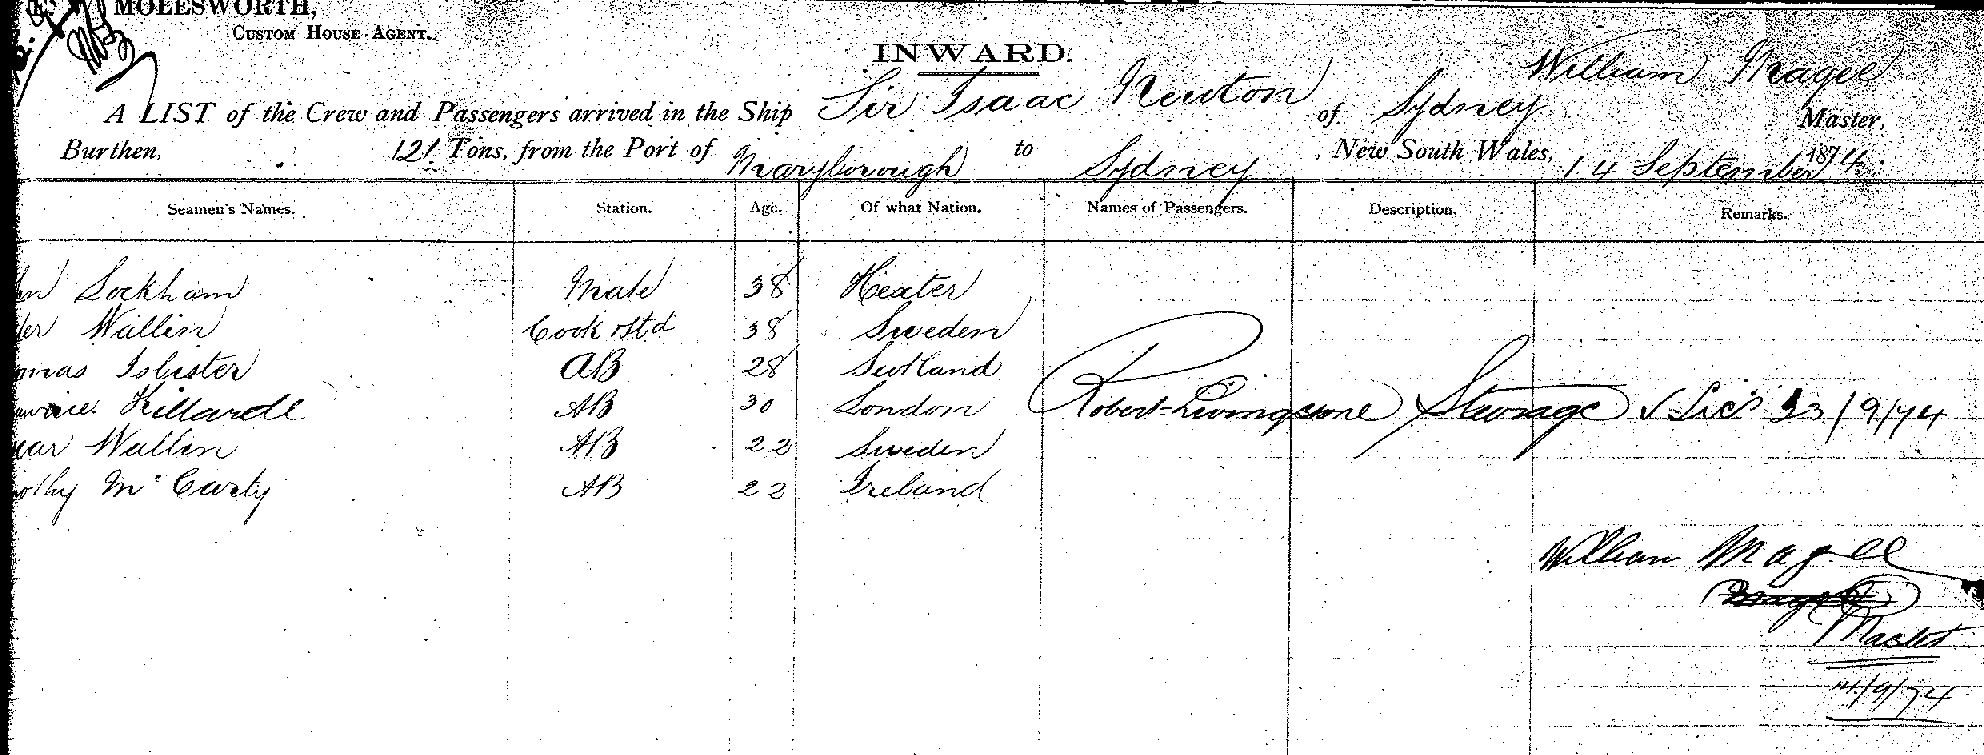 MOLESWORTH,
CUSTOM HOUSE AGENT.
INWARD.
William Magee
A LIST of the Crew and Passengers arrived in the Ship Sir Isaac Newton of Sydney Master,
Burthen, 121 Tons, from the Port of Maryborough to Sydney, New South Wales, 14 September 1874
Seamen's Names. Station. Age. Of what Nation. Names of Passengers. Description. Remarks.
hn Lockham Mate 38 Hexter
ter Wallin Cook & Std 38 Sweden
omas Isbister AB 28 Scotland
Killardl AB 30 London Robert Livingstone Steerage 23/9/74
Wallin AB 22 Sweden
mothy McCarty AB 22 Ireland
William Magee
Master
14/9/74